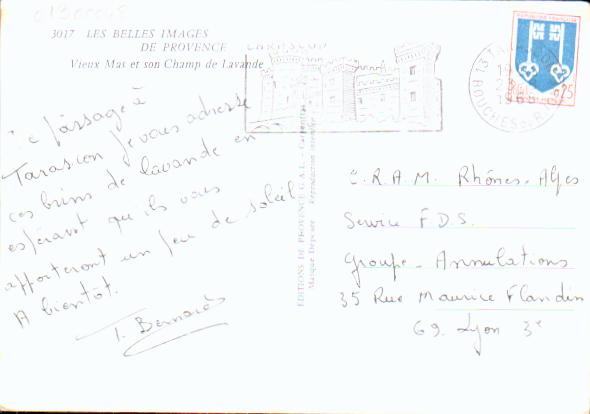 3017 LES BELLES IMAGES
DE PROVENCE
Vieux Mas et son Champ de Lavande
De passage à
Tarascon je vous adresse
ces brins de lavande en
espérant qu'ils vous
apporteront un peu de soleil
A bientôt.
T. Bernard
EDITIONS DE PROVENCE G.A.L. - Carpentras
Marque Déposée Reproduction interdite
TARASCON
13 TARASCON
BOUCHES DU RHONE
REPUBLIQUE FRANÇAISE
0,25
C.R.A.M. Rhônes-Alpes
Service F.D.S.
Groupe - Annulations
35 Rue Maurice Flandin
69. Lyon 3e